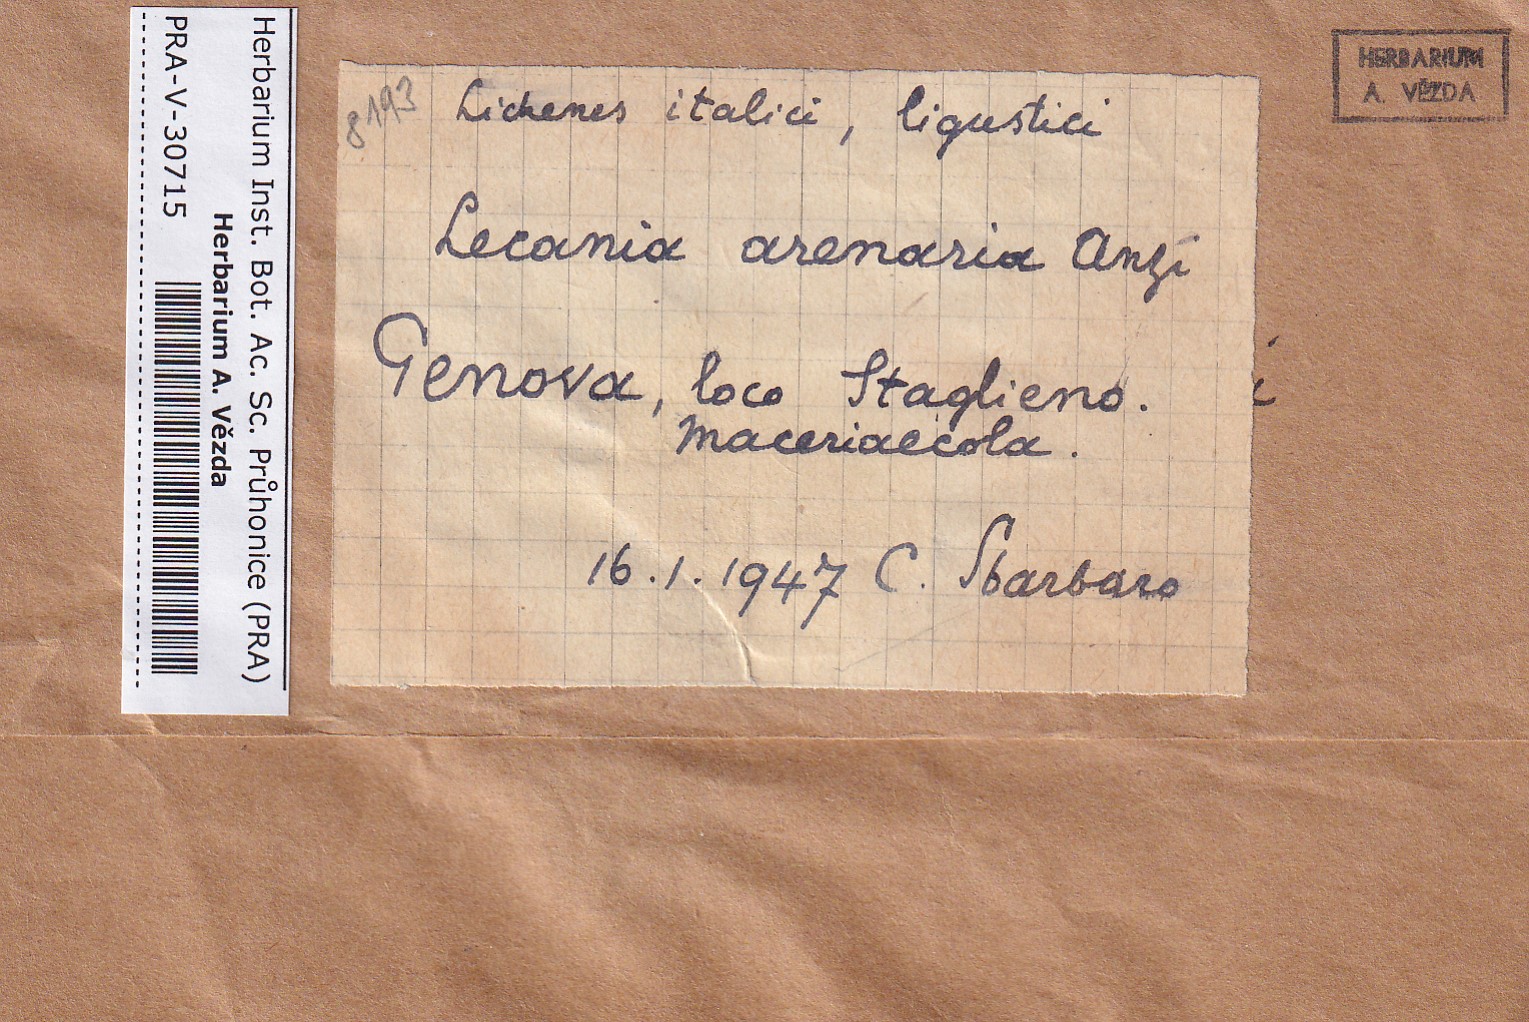 Herbarium Inst. Bot. Ac. Sc. Průhonice (PRA)
Herbarium A. Vězda
PRA-V-30715
HERBARIUM
A. VĚZDA
8193
Lichenes italici, ligustici
Lecania arenaria Anzi
Genova, loco Staglieno.
i
maceriaecola.
16.1.1947 C. Sbarbaro